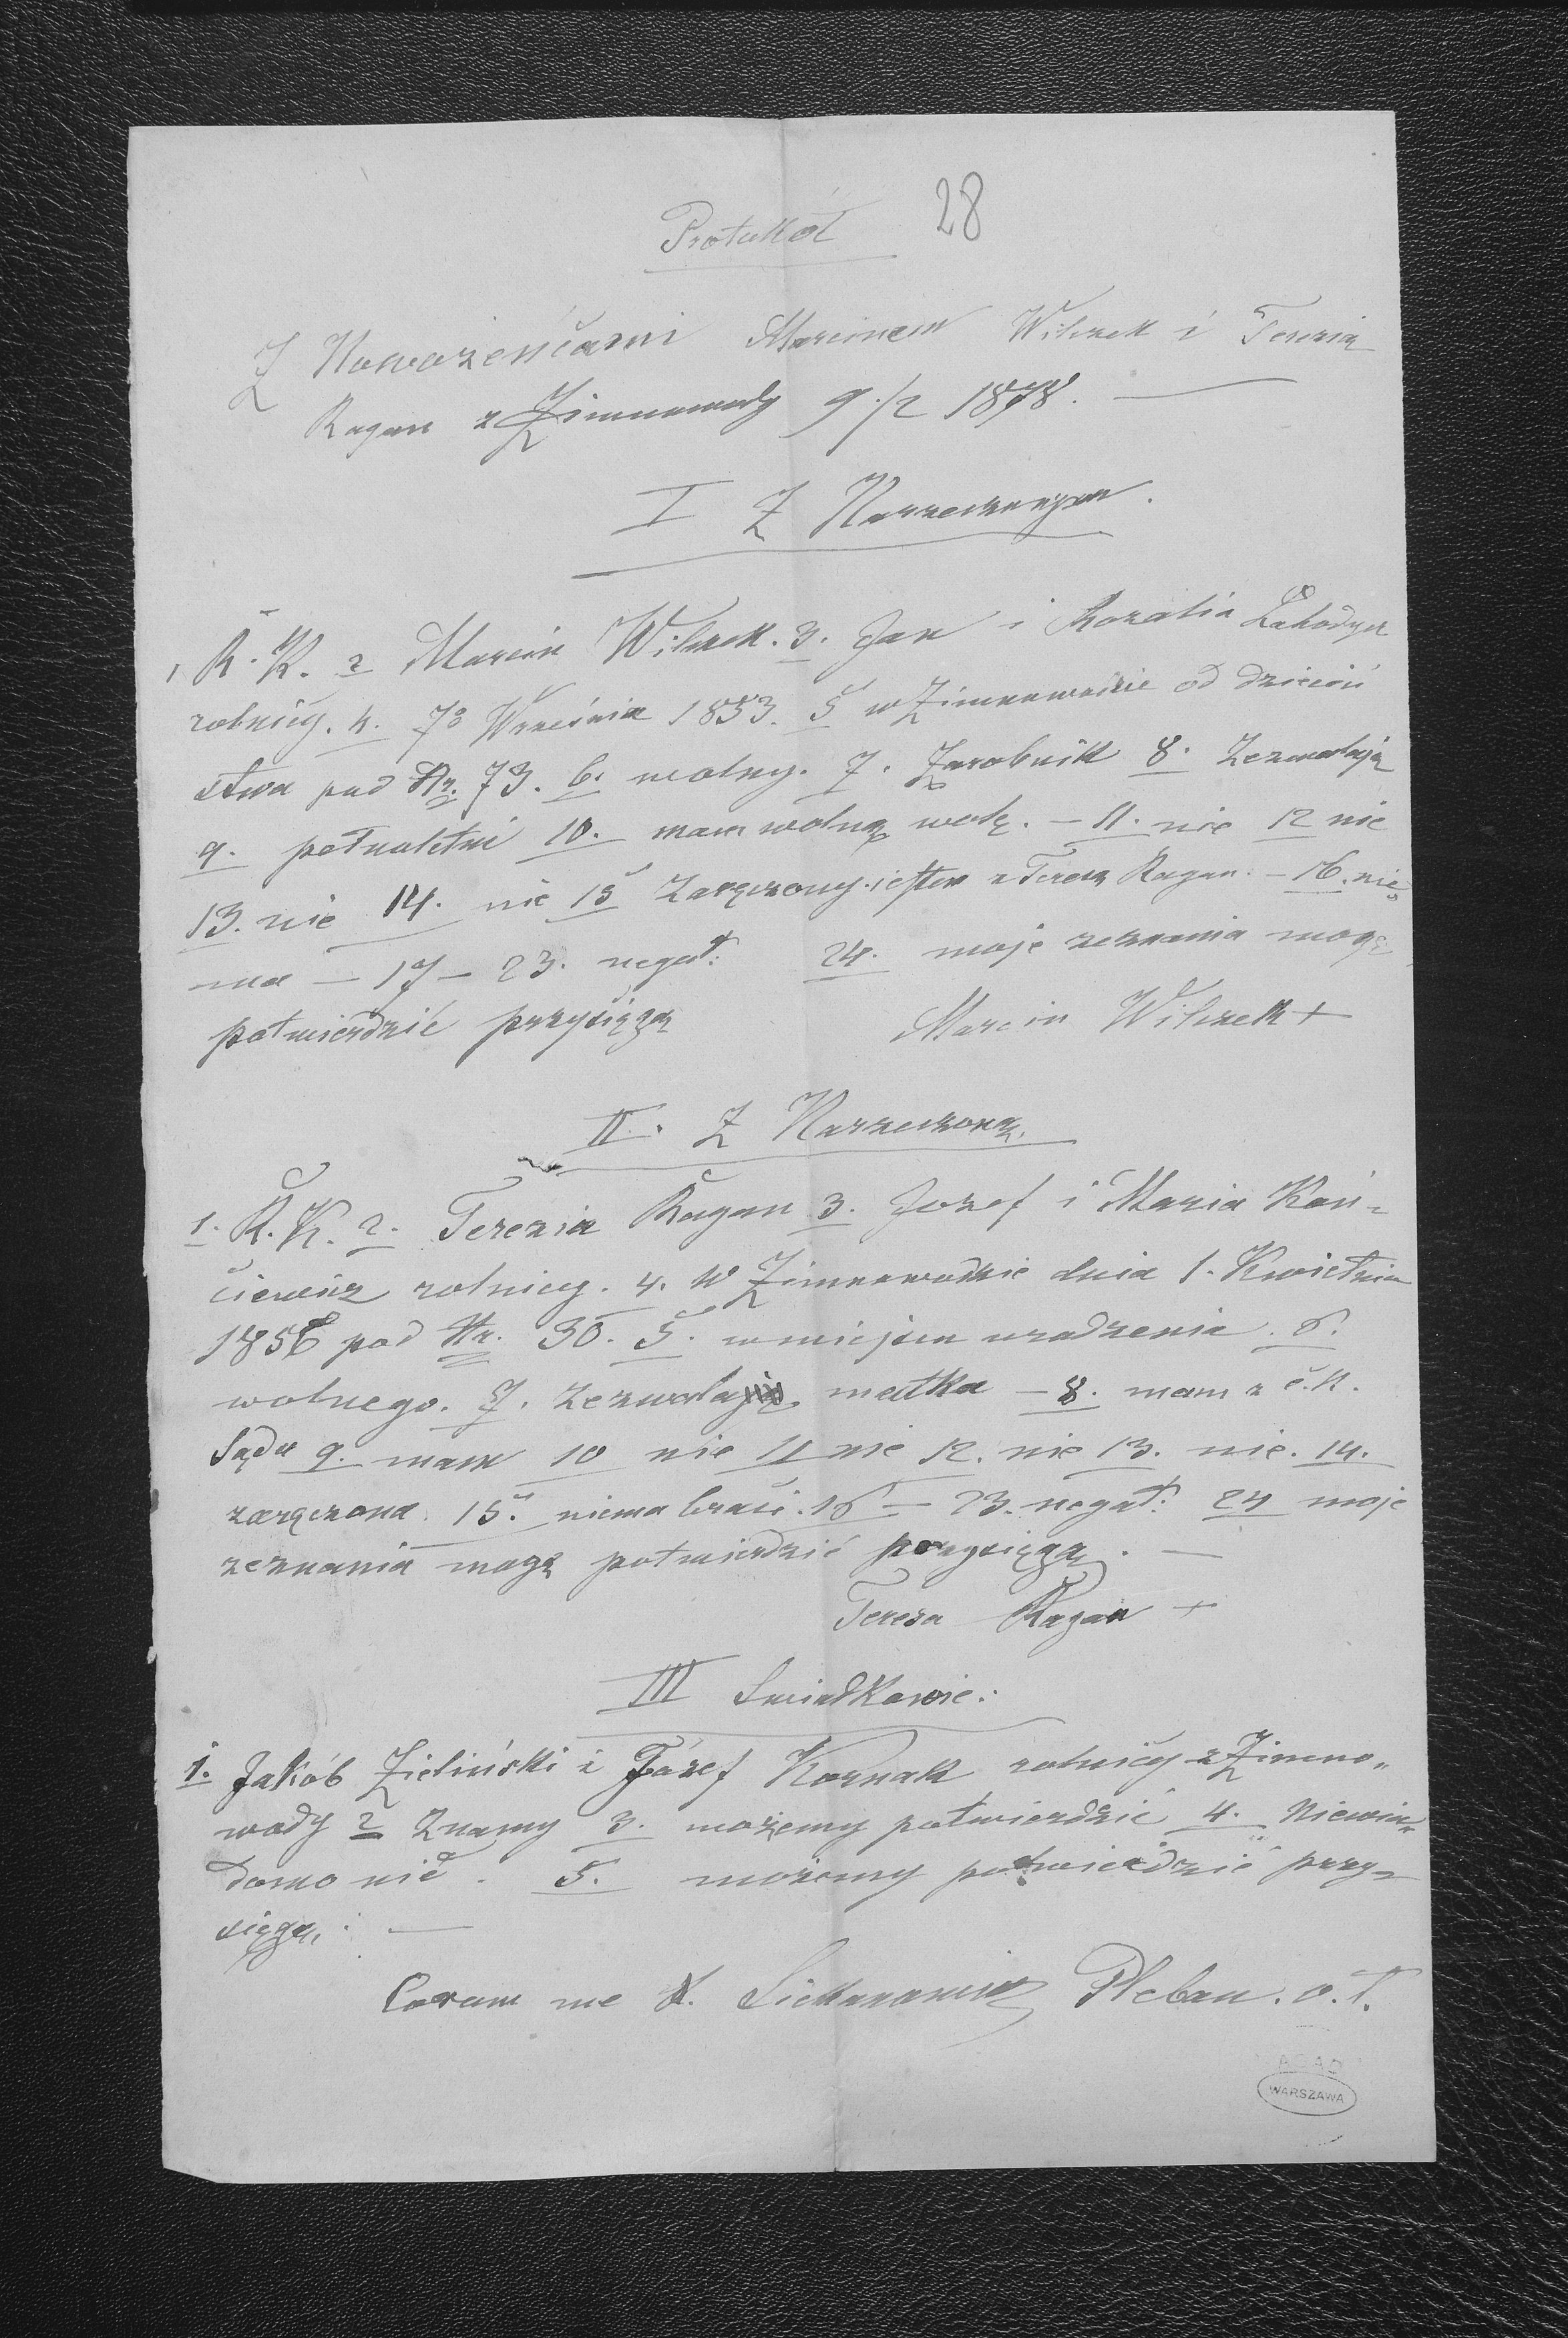 28
Protokół
Z Nowożeńcami Marcinem Wilczek i Terezią
Ragan z Zimnawody 9./2 1878. —
I Z Narzeczonym.
1 R. K. 2 Marcin Wilczek. 3. Jan i Rozalia
rolnicy. 4. 7º Września 1853. 5 w Zimnawodzie od dzieciń
stwa pod Nr. 73. 6. wolny. 7. Zarobnik 8. Zezwalają
9. pełnoletni 10. mam wolną wolę. – 11. nie 12 nie
13. nie 14. nie 15 Zaręczony jestem z Tereza Ragan. – 16. nie=
ma – 17 – 23. negat: 24. moje zeznania mogę
potwierdzić przysięgą
Marcin Wilczek +
II. Z Narzeczoną.
1. R. K. 2. Terezia Ragan 3. Jozef i Maria Kań=
ciewicz rolnicy. 4. W Zimnawodzie dnia 1. Kwietnia
1856 pod Nr. 30. 5. w miejscu urodzenia. 6.
wolnego. 7. Zezwala matka – 8. mam z c. k.
Sądu 9. mam 10 nie 11 nie 12. nie 13. nie. 14.
zaręczona. 15. niema braci. 16 – 23. negat: 24 moje
zeznania mogę potwierdzić przysięgą. —
Teresa Ragan +
III Swiadkowie:
1. Jakób Zieliński i Józef Kornak rolnicy z Zimno„
wody 2 Znamy 3. możemy potwierdzić 4. Niewia„
domo nic. 5. możemy potwierdzić przy=
sięgą. —
Coram me Pleban. o. ł.
AGAD
WARSZAWA